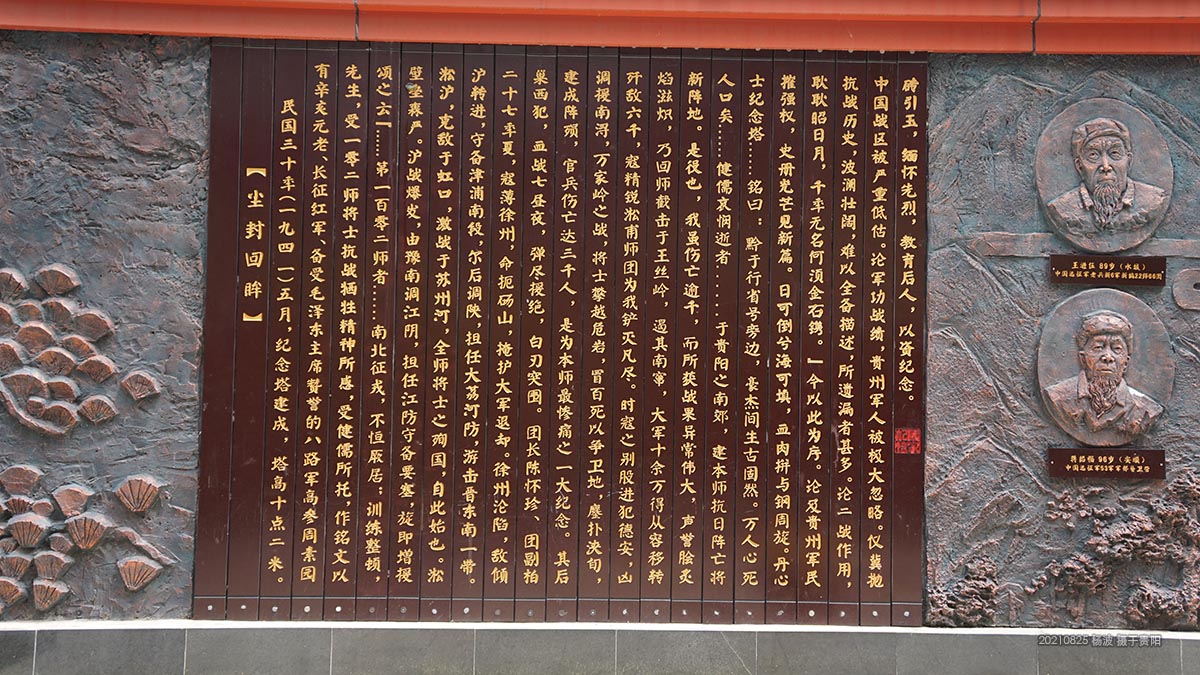 【尘封回眸】
民国三十年(一九四一)五月,纪念塔建成,塔高十点二米。
有辛亥元老、长征红军、备受毛泽东主席赞誉的八路军高参周素园
先生,受一零二师将士抗战牺牲精神所感,受健儒所托,作铭文以
颂之云「……第一百零二师者……南北征戎,不恒厥居;训练整顿,
壁垒森严。沪战爆发,由豫南调江阴,担任江防守备要塞,旋即增援
淞沪,克敌于虹口,激战于苏州河,全师将士之殉国,自此始也。淞
沪转进,守备津浦南段,尔后调陕,担任大荔河防,游击晋东南一带。
二十七年夏,寇薄徐州,命扼砀山,掩护大军退却。徐州沦陷,敌倾
巢西犯,血战七昼夜,弹尽援绝,白刃突围。团长陈怀珍、团副柏
建成阵殒,官兵伤亡达三千人,是为本师最惨痛之一大纪念。其后
调援南浔,万家岭之战,将士攀越危岩,冒百死以争卫地,鏖扑浃旬,
歼敌六千,寇精锐淞甫师团为我铲灭凡尽。时寇之别股进犯德安,凶
焰滋炽,乃回师截击于王丝岭,遏其南窜,大军十余万得从容移转
新阵地。是役也,我虽伤亡逾千,而所获战果异常伟大,声誉脍炙
人口矣……健儒哀悯逝者……于贵阳之南郊,建本师抗日阵亡将
士纪念塔……铭曰:黔于行省号旁边,豪杰间生古固然。万人心死
摧强权,史册光芒见新篇。日可倒兮海可填,血肉拼与钢周旋。丹心
耿耿昭日月,千年元名何须金石镌。」今以此为序。论及贵州军民
抗战历史,波澜壮阔,难以全备描述,所遗漏者甚多。论二战作用,
中国战区被严重低估。论军功战绩,贵州军人被极大忽略。仅冀抛
砖引玉,缅怀先烈,教育后人,以资纪念。
89岁(水城)
中国远征军老兵新6军新编22师66团
96岁(安顺)
中国远征军53军军部警卫营
20210825 杨波 摄于贵阳